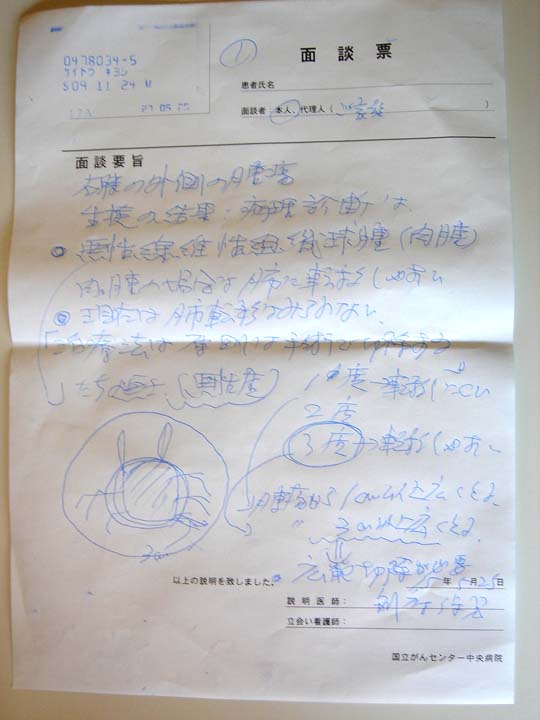 0478034-5
S09 11 24 M
①
面談票
患者氏名
面談者：本人、代理人（ご家族）
面談要旨
右膝の外側の腫瘍
生検の結果：病理診断は、
悪性線維性組織球腫（肉腫）
肉腫の場合は肺に転移しやすい
現在は肺転移はみられない、
治療法は原則は手術で切除する
（悪性度） 1度→転移しにくい
2度
3度→転移しやすい
腫瘍から1cm以上広くとる、
〃 3cm以上広くとる、
3cm
広範切除が必要
以上の説明を致しました。 年 5月25日
説明医師：
立会い看護師：
国立がんセンター中央病院